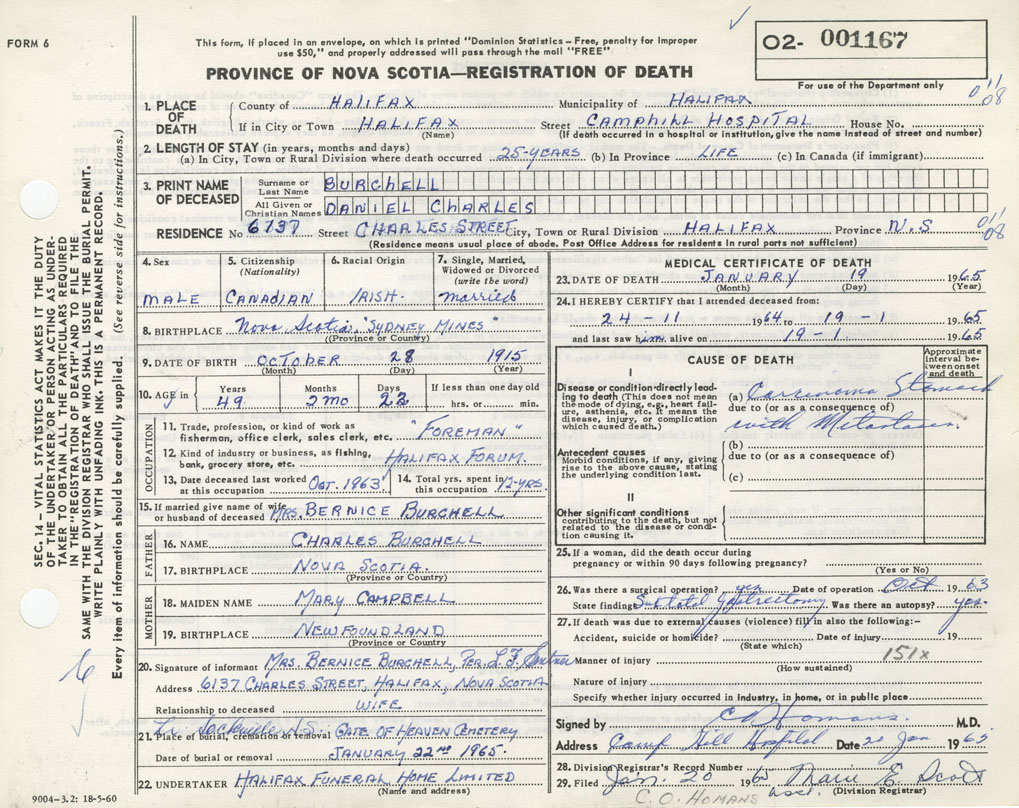 FORM 6
This form, if placed in an envelope, on which is printed "Dominion Statistics - Free, penalty for improper
use $50," and properly addressed will pass through the mail "FREE"
O2- 001167
For use of the Department only
PROVINCE OF NOVA SCOTIA—REGISTRATION OF DEATH
11/08
1. PLACE OF DEATH
County of HALIFAX Municipality of HALIFAX
If in City or Town HALIFAX Street CAMPHILL HOSPITAL House No.
(Name) (If death occurred in a hospital or institution, give the name instead of street and number)
2. LENGTH OF STAY (in years, months and days)
(a) In City, Town or Rural Division where death occurred 25-YEARS (b) In Province LIFE (c) In Canada (if immigrant)
3. PRINT NAME OF DECEASED
Surname or Last Name BURCHELL
All Given or Christian Names DANIEL CHARLES
RESIDENCE No 6137 Street CHARLES STREET City, Town or Rural Division HALIFAX Province N.S
11/08
(Residence means usual place of abode. Post Office Address for residents in rural parts not sufficient)
SEC. 14 – VITAL STATISTICS ACT MAKES IT THE DUTY
OF THE UNDERTAKER OR PERSON ACTING AS UNDER-
TAKER TO OBTAIN ALL THE PARTICULARS REQUIRED
IN THE "REGISTRATION OF DEATH" AND TO FILE THE
SAME WITH THE DIVISION REGISTRAR WHO SHALL ISSUE THE BURIAL PERMIT.
WRITE PLAINLY WITH UNFADING INK. THIS IS A PERMANENT RECORD.
Every item of information should be carefully supplied. (See reverse side for instructions.)
4. Sex
MALE
5. Citizenship
(Nationality)
CANADIAN
6. Racial Origin
IRISH.
7. Single, Married,
Widowed or Divorced
(write the word)
Married
8. BIRTHPLACE Nova Scotia. "SYDNEY MINES"
(Province or Country)
9. DATE OF BIRTH OCTOBER 28 1915
(Month) (Day) (Year)
10. AGE in
Years Months Days If less than one day old
49. 2 MO 22 hrs. or min.
OCCUPATION
11. Trade, profession, or kind of work as
fisherman, office clerk, sales clerk, etc. "FOREMAN"
12. Kind of industry or business, as fishing,
bank, grocery store, etc. HALIFAX FORUM.
13. Date deceased last worked
at this occupation OCT. 1963
14. Total yrs. spent in
this occupation 12-YRS.
15. If married give name of wife
or husband of deceased MRS. BERNICE BURCHELL
FATHER
16. NAME CHARLES BURCHELL
17. BIRTHPLACE NOVA SCOTIA.
(Province or Country)
MOTHER
18. MAIDEN NAME MARY CAMPBELL
19. BIRTHPLACE NEWFOUNDLAND
(Province or Country)
20. Signature of informant MRS. BERNICE BURCHELL, PER. L.F.
Address 6137 CHARLES STREET, HALIFAX, NOVA SCOTIA
Relationship to deceased WIFE
Lr Sackville N.S.
21. Place of burial, cremation or removal GATE OF HEAVEN CEMETERY
Date of burial or removal JANUARY 22nd 1965.
22. UNDERTAKER HALIFAX FUNERAL HOME LIMITED
(Name and address)
9004-3.2: 18-5-60
MEDICAL CERTIFICATE OF DEATH
23. DATE OF DEATH JANUARY 19 1965
(Month) (Day) (Year)
24. I HEREBY CERTIFY that I attended deceased from:
24-11 1964 to 19-1 1965
and last saw him alive on 19-1 1965
CAUSE OF DEATH
Approximate
interval be-
tween onset
and death
I
Disease or condition directly lead-
ing to death (This does not mean
the mode of dying, e.g., heart fail-
ure, asthenia, etc. It means the
disease, injury, or complication
which caused death.)
(a) Carcinoma Stomach
due to (or as a consequence of)
with Metastases.
Antecedent causes
Morbid conditions, if any, giving
rise to the above cause, stating
the underlying condition last.
(b)
due to (or as a consequence of)
(c)
II
Other significant conditions
contributing to the death, but not
related to the disease or condi-
tion causing it.
25. If a woman, did the death occur during
pregnancy or within 90 days following pregnancy?
(Yes or No)
26. Was there a surgical operation? yes Date of operation Oct 1963
State findings Subtotal Gastrectomy Was there an autopsy? yes.
27. If death was due to external causes (violence) fill in also the following:–
Accident, suicide or homicide? Date of injury 19
(State which)
Manner of injury 151x
(How sustained)
Nature of injury
Specify whether injury occurred in industry, in home, or in public place
Signed by C O Homans. M.D.
Address Camp Hill Hospital Date 20 Jan 1965
28. Division Registrar's Record Number
29. Filed Jan. 20 1965 Marie E. Scott
asst. (Division Registrar)
C.O. HOMANS